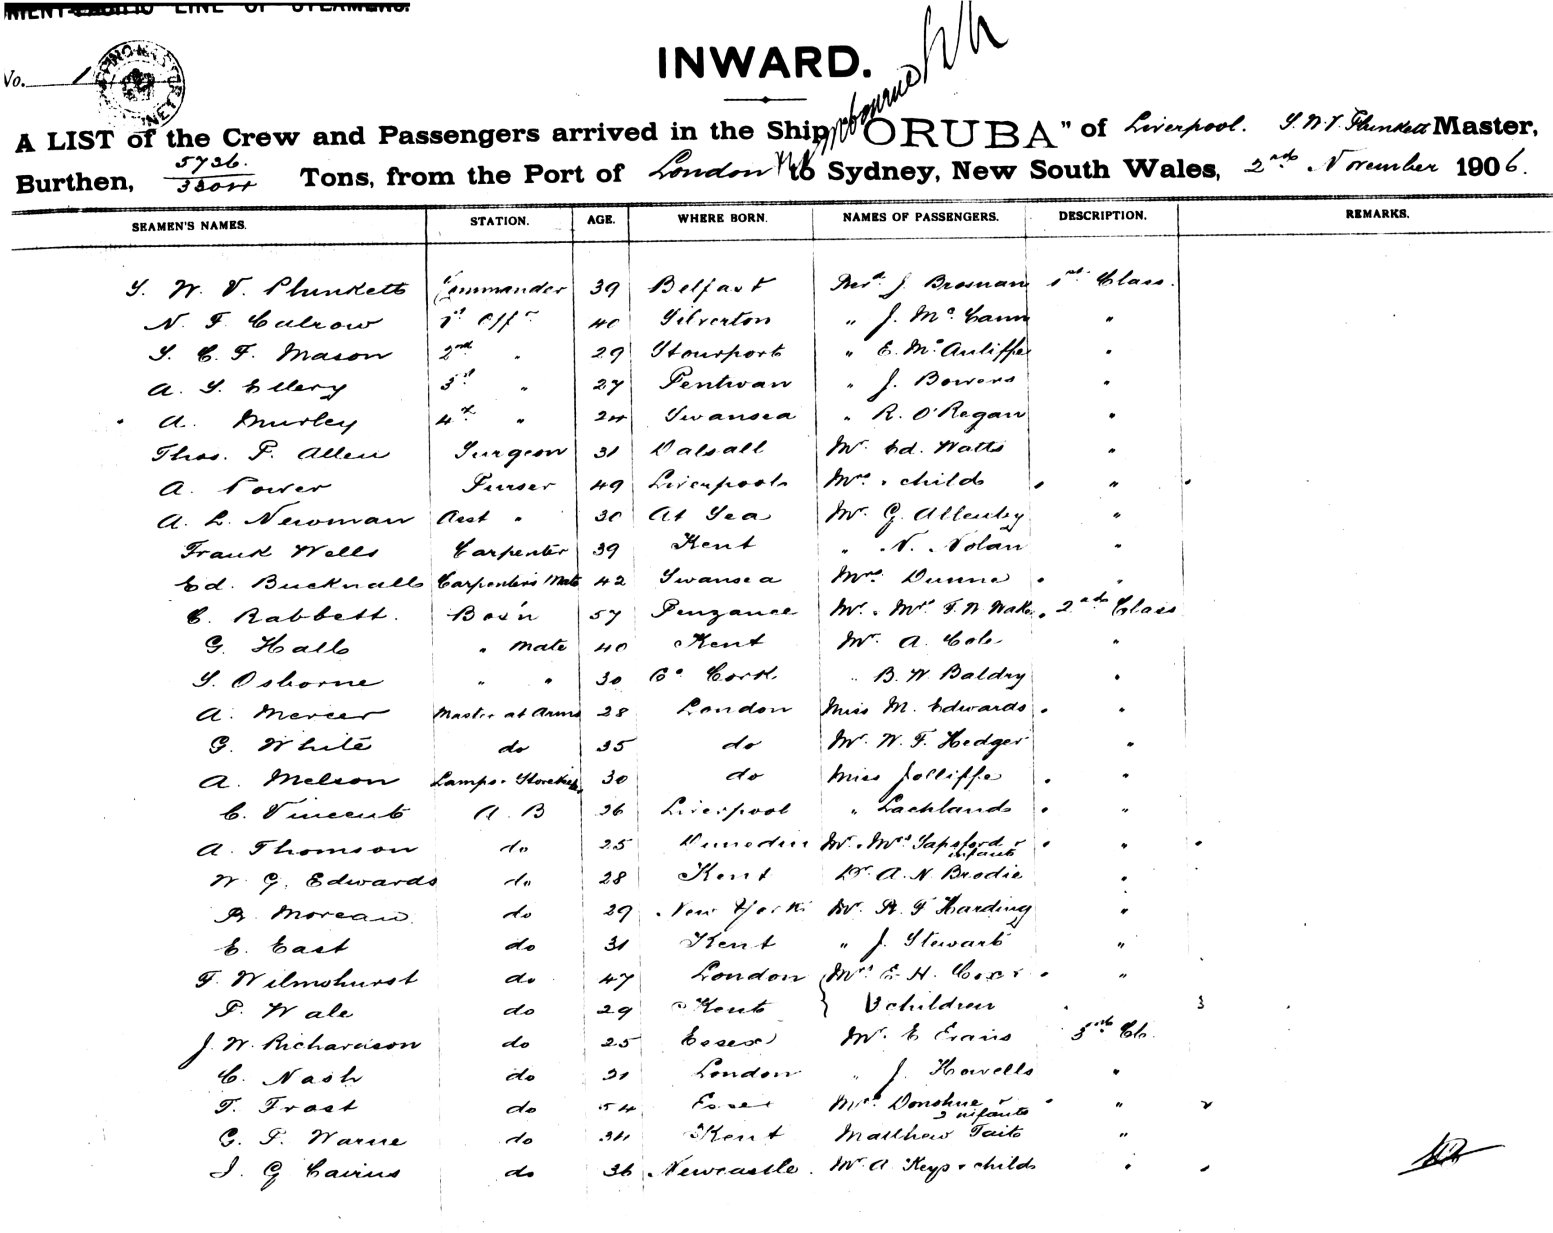 ORIENT-PACIFIC LINE OF STEAMERS.
INWARD.
No. 1
Melbourne
A LIST of the Crew and Passengers arrived in the Ship "ORUBA" of Liverpool. Plunkett Master,
Burthen, 5736. Tons, from the Port of London to Sydney, New South Wales, 2nd November 1906.
SEAMEN'S NAMES. STATION. AGE. WHERE BORN. NAMES OF PASSENGERS. DESCRIPTION. REMARKS.
S. W. V. Plunkett Commander 39 Belfast Revd J. Brosnan 1st Class.
N. F. Calrow 1st Offr 40 Silverton " J. McCann "
S. C. F. Mason 2nd " 29 Stourport " E. McAuliffe "
A. S. Ellery 3rd " 27 Pentwan " J. Bowers "
A. Murley 4th " 24 Swansea " R. O'Regan "
Thos. P. Allen Surgeon 31 Walsall Mr Ed. Watts "
A. Power Purser 49 Liverpool Mrs & child "
A. L. Newman Asst " 30 At Sea Mr G. Allenby "
Frank Wells Carpenter 39 Kent " N. Nolan "
Ed. Bucknall Carpenter's Mate 42 Swansea Mrs Dunne "
C. Rabbett. Bos'n 57 Penzance Mr & Mrs F. W. Wake 2nd Class
G. Hall " Mate 40 Kent Mr A. Cole "
S. Osborne " " 30 Co Cork " B. W. Baldry "
A. Mercer Master at Arms 28 London Miss M. Edwards "
G. White do 35 do Mr W. F. Hedger "
A. Melson Lamps & Storekeeper 30 do Miss Jolliffe "
C. Vincent A. B 26 Liverpool " Lachland "
A. Thomson do 25 Dunedin Mr & Mrs Tapsford & "
infant
W. G. Edwards do 28 Kent Dr A. N. Brodie "
R. Moreau do 29 New York Mr R. F Harding "
E. East do 31 Kent " J. Stewart "
F. Wilmshurst do 47 London Mrs E. H. Coxe & "
P. Wale do 29 Kent 3 children 3
J. W. Richardson do 25 Essex Mr E Evans 3rd Cl.
C. Nash do 21 London " J. Howells "
T. Frost do 54 Essex Mrs Donohue & "
2 infants
G. P. Warne do 34 Kent Matthew Tait "
J. G Cairns do 36 Newcastle. Mr A Keys & child "